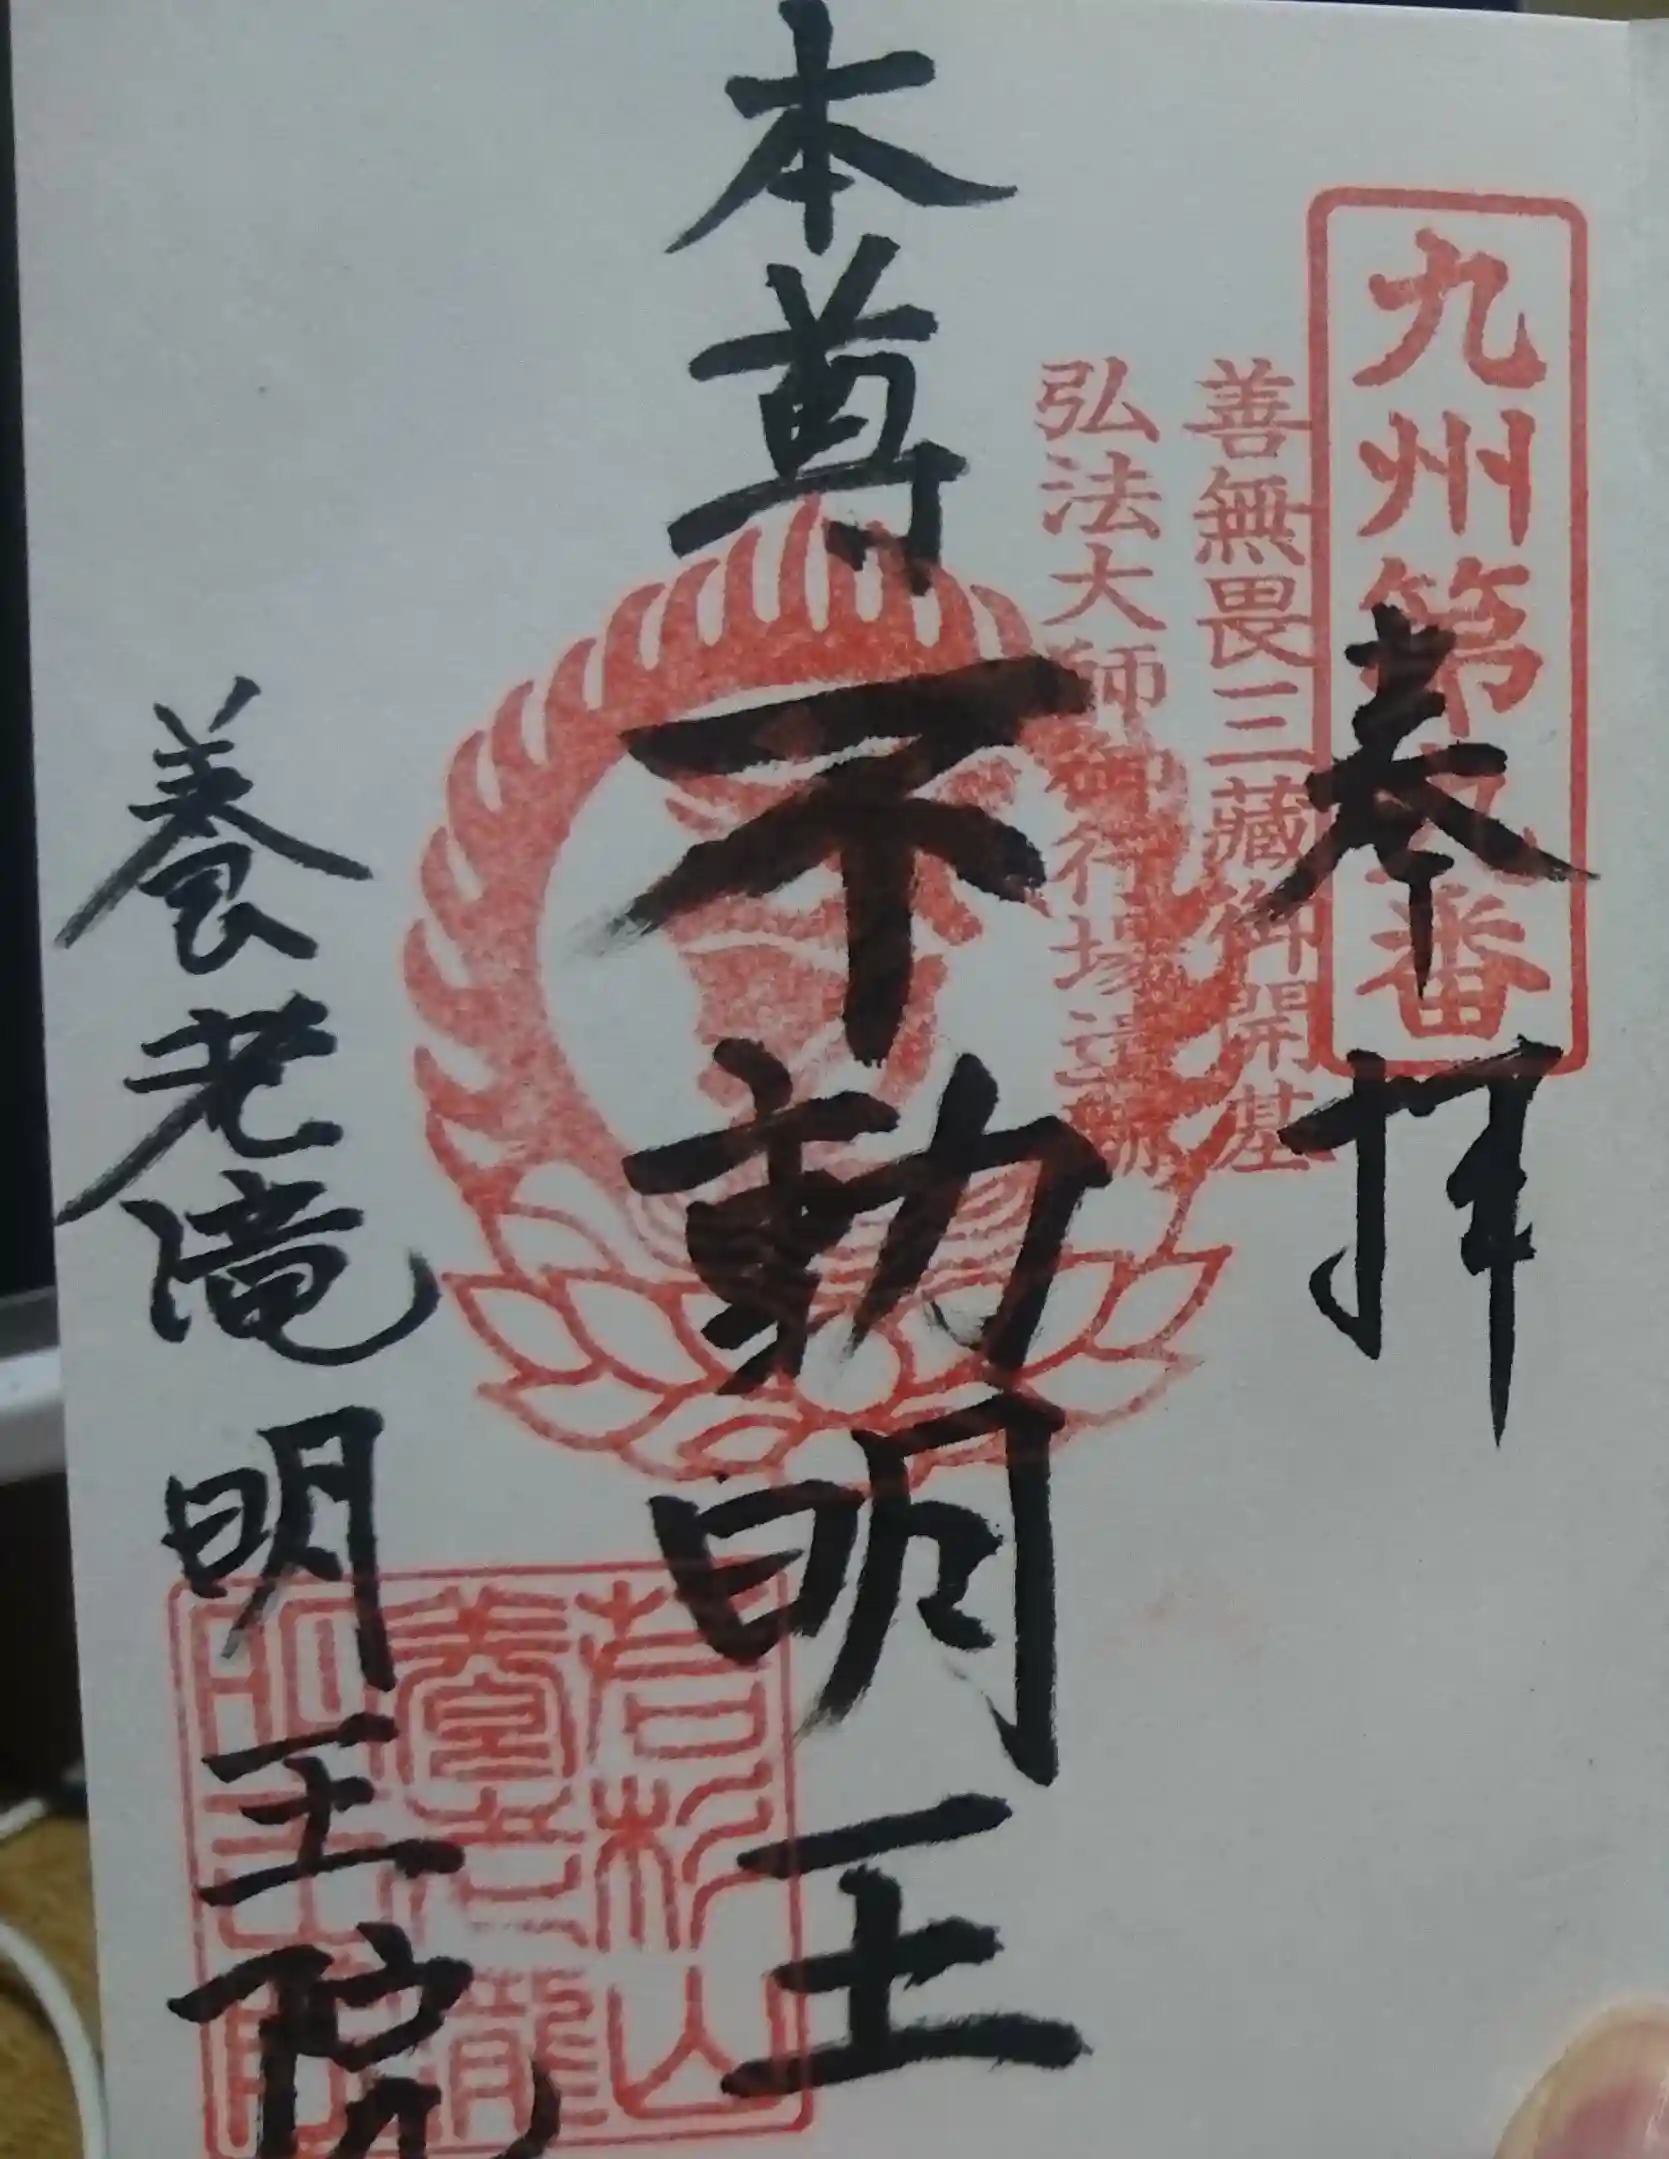 九州第九番
奉拝
善無畏三藏御開基
弘法大師御行場遺跡
本尊不動明王
養老滝明王院
若杉山
養老瀧
明王院